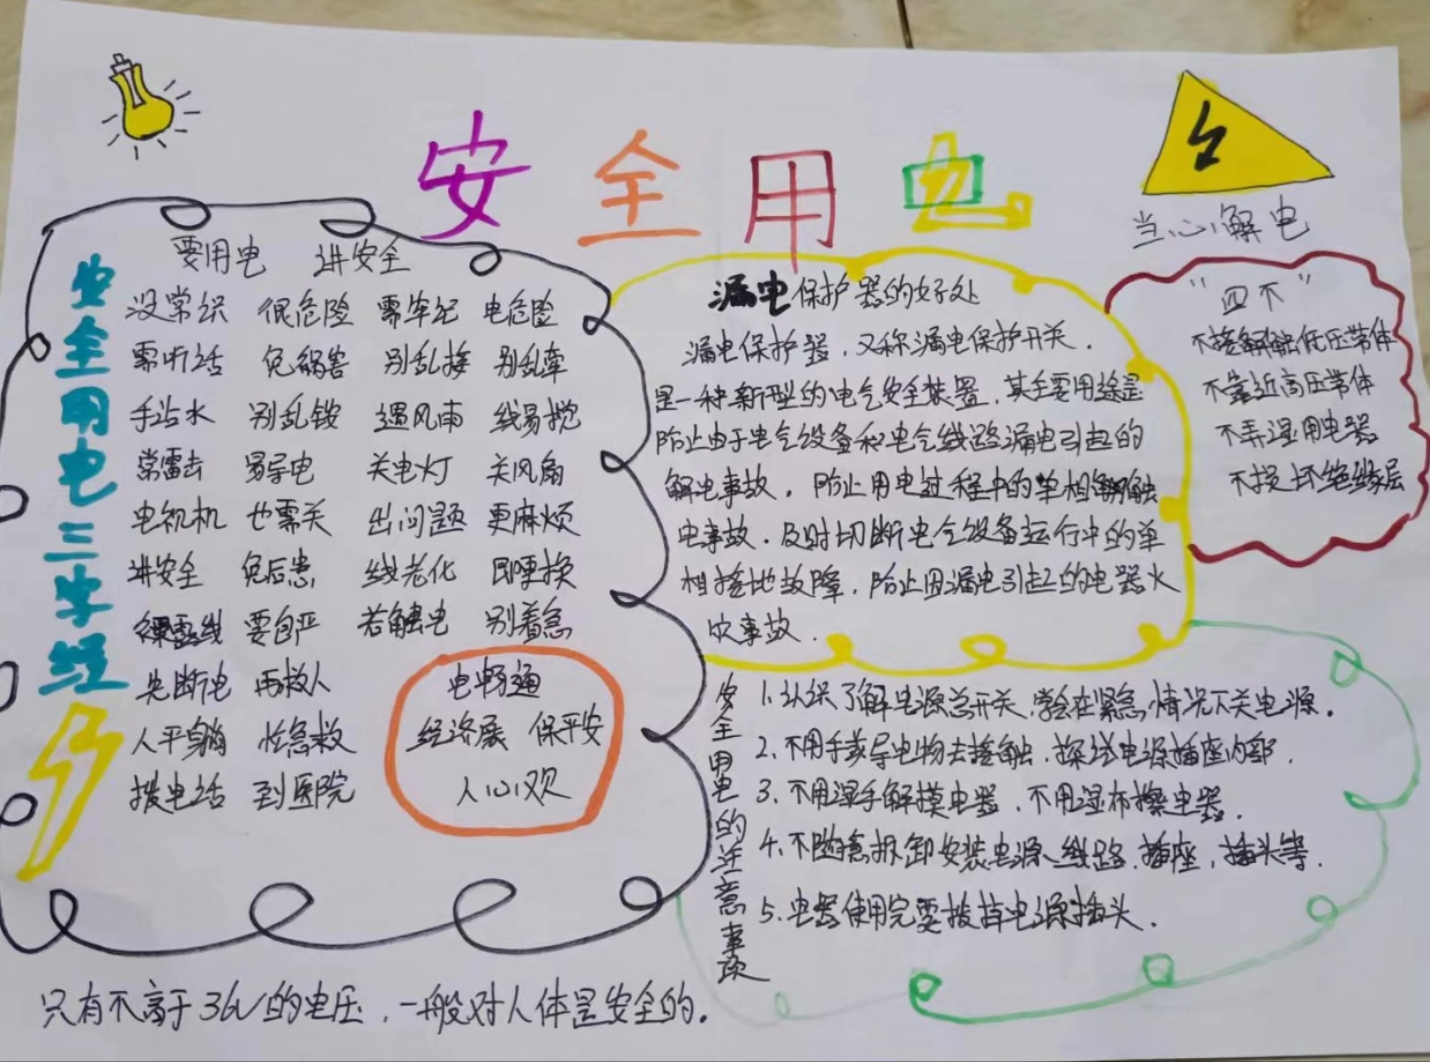 安全用电
当心解电
安全用电三字经
要用电 讲安全
没常识 很危险 需牢记 电危险
需听话 免祸害 别乱接 别乱牵
手沾水 别乱按 遇风雨 线易搅
常雷击 易导电 关电灯 关风扇
电视机 也需关 出问题 更麻烦
讲安全 免后患 线老化 即更换
裸露线 要自严 若触电 别着急
先断电 再救人
人平躺 忙急救
拨电话 到医院
电畅通
经济展 保平安
人心欢
漏电保护器的好处
漏电保护器，又称漏电保护开关，
是一种新型的电气安全装置，其主要用途是
防止由于电气设备和电气线路漏电引起的
解电事故，防止用电过程中的单相解触
电事故，及时切断电气设备运行中的单
相接地故障，防止因漏电引起的电器火
灾事故．
“四不”
不接解触低压带体
不靠近高压带体
不弄湿用电器
不损坏绝缘层
安全用电的注意事项
1. 认识了解电源总开关，学会在紧急情况下关电源．
2. 不用手或导电物去接触、探试电源插座内部．
3. 不用湿手解摸电器，不用湿布擦电器．
4. 不随意拆卸安装电源、线路、插座，插头等．
5. 电器使用完要拔掉电源插头．
只有不高于36V的电压，一般对人体是安全的。